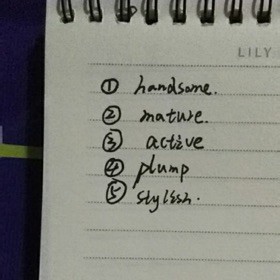 LILY
① handsome.
② mature.
③ active
④ plump
⑤ stylish.